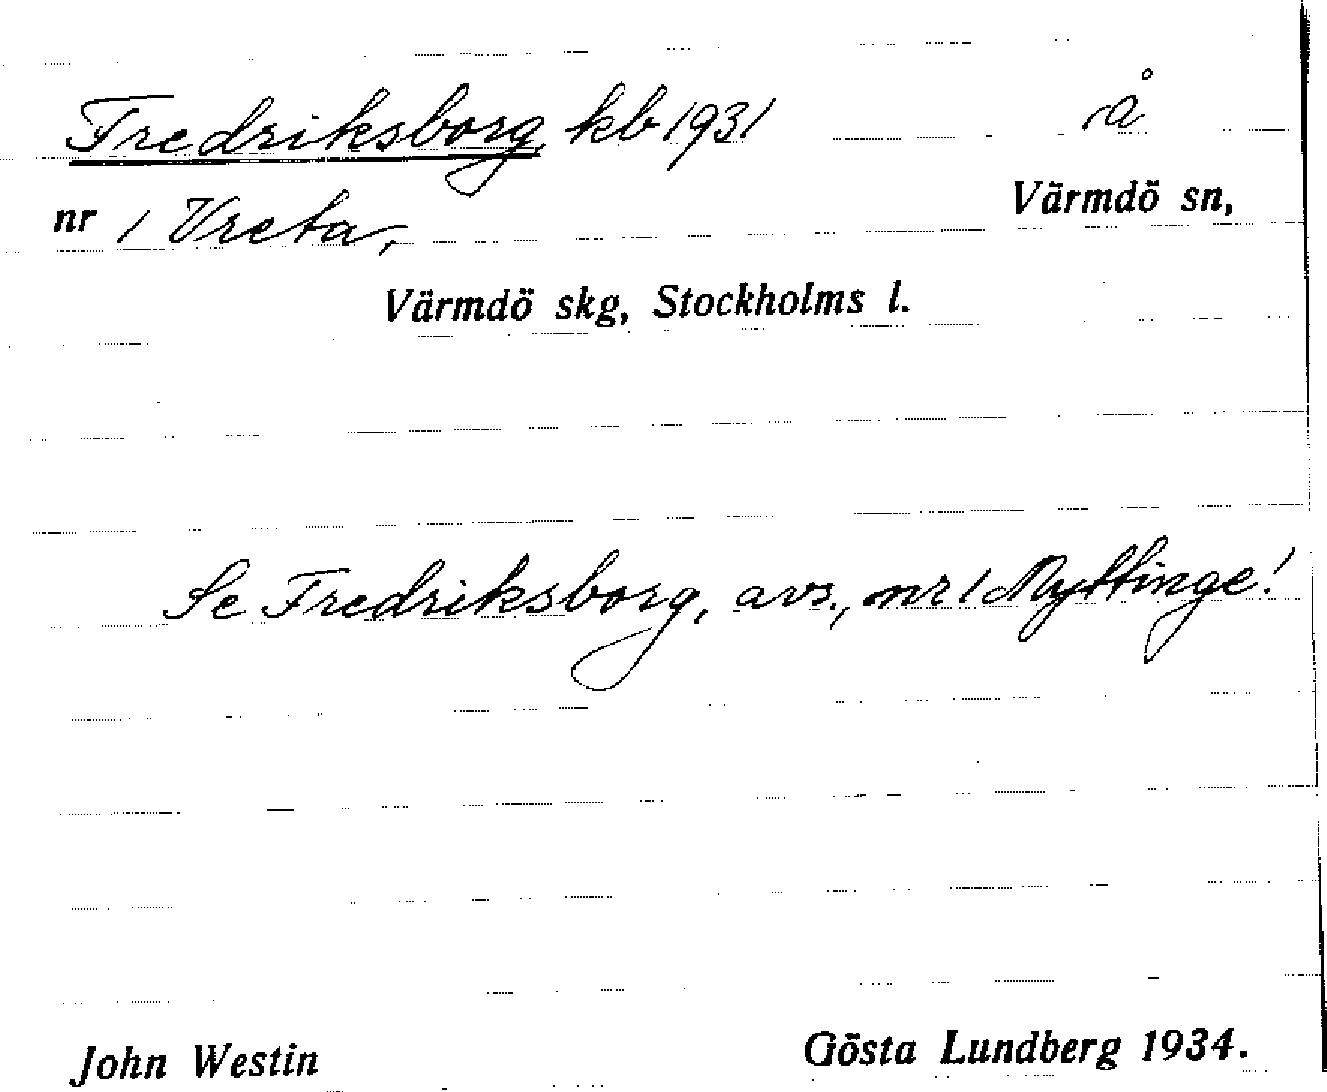 Fredriksborg, kb 1931 å
Värmdö sn,
nr 1 Vreta,
Värmdö skg, Stockholms l.
Se Fredriksborg, avs., nr 1 Myttinge!
John Westin Gösta Lundberg 1934.